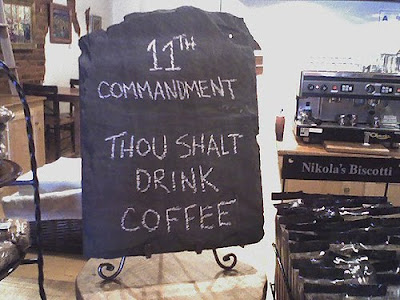 11TH
COMMANDMENT
THOU SHALT
DRINK
COFFEE
Nikola's Biscotti